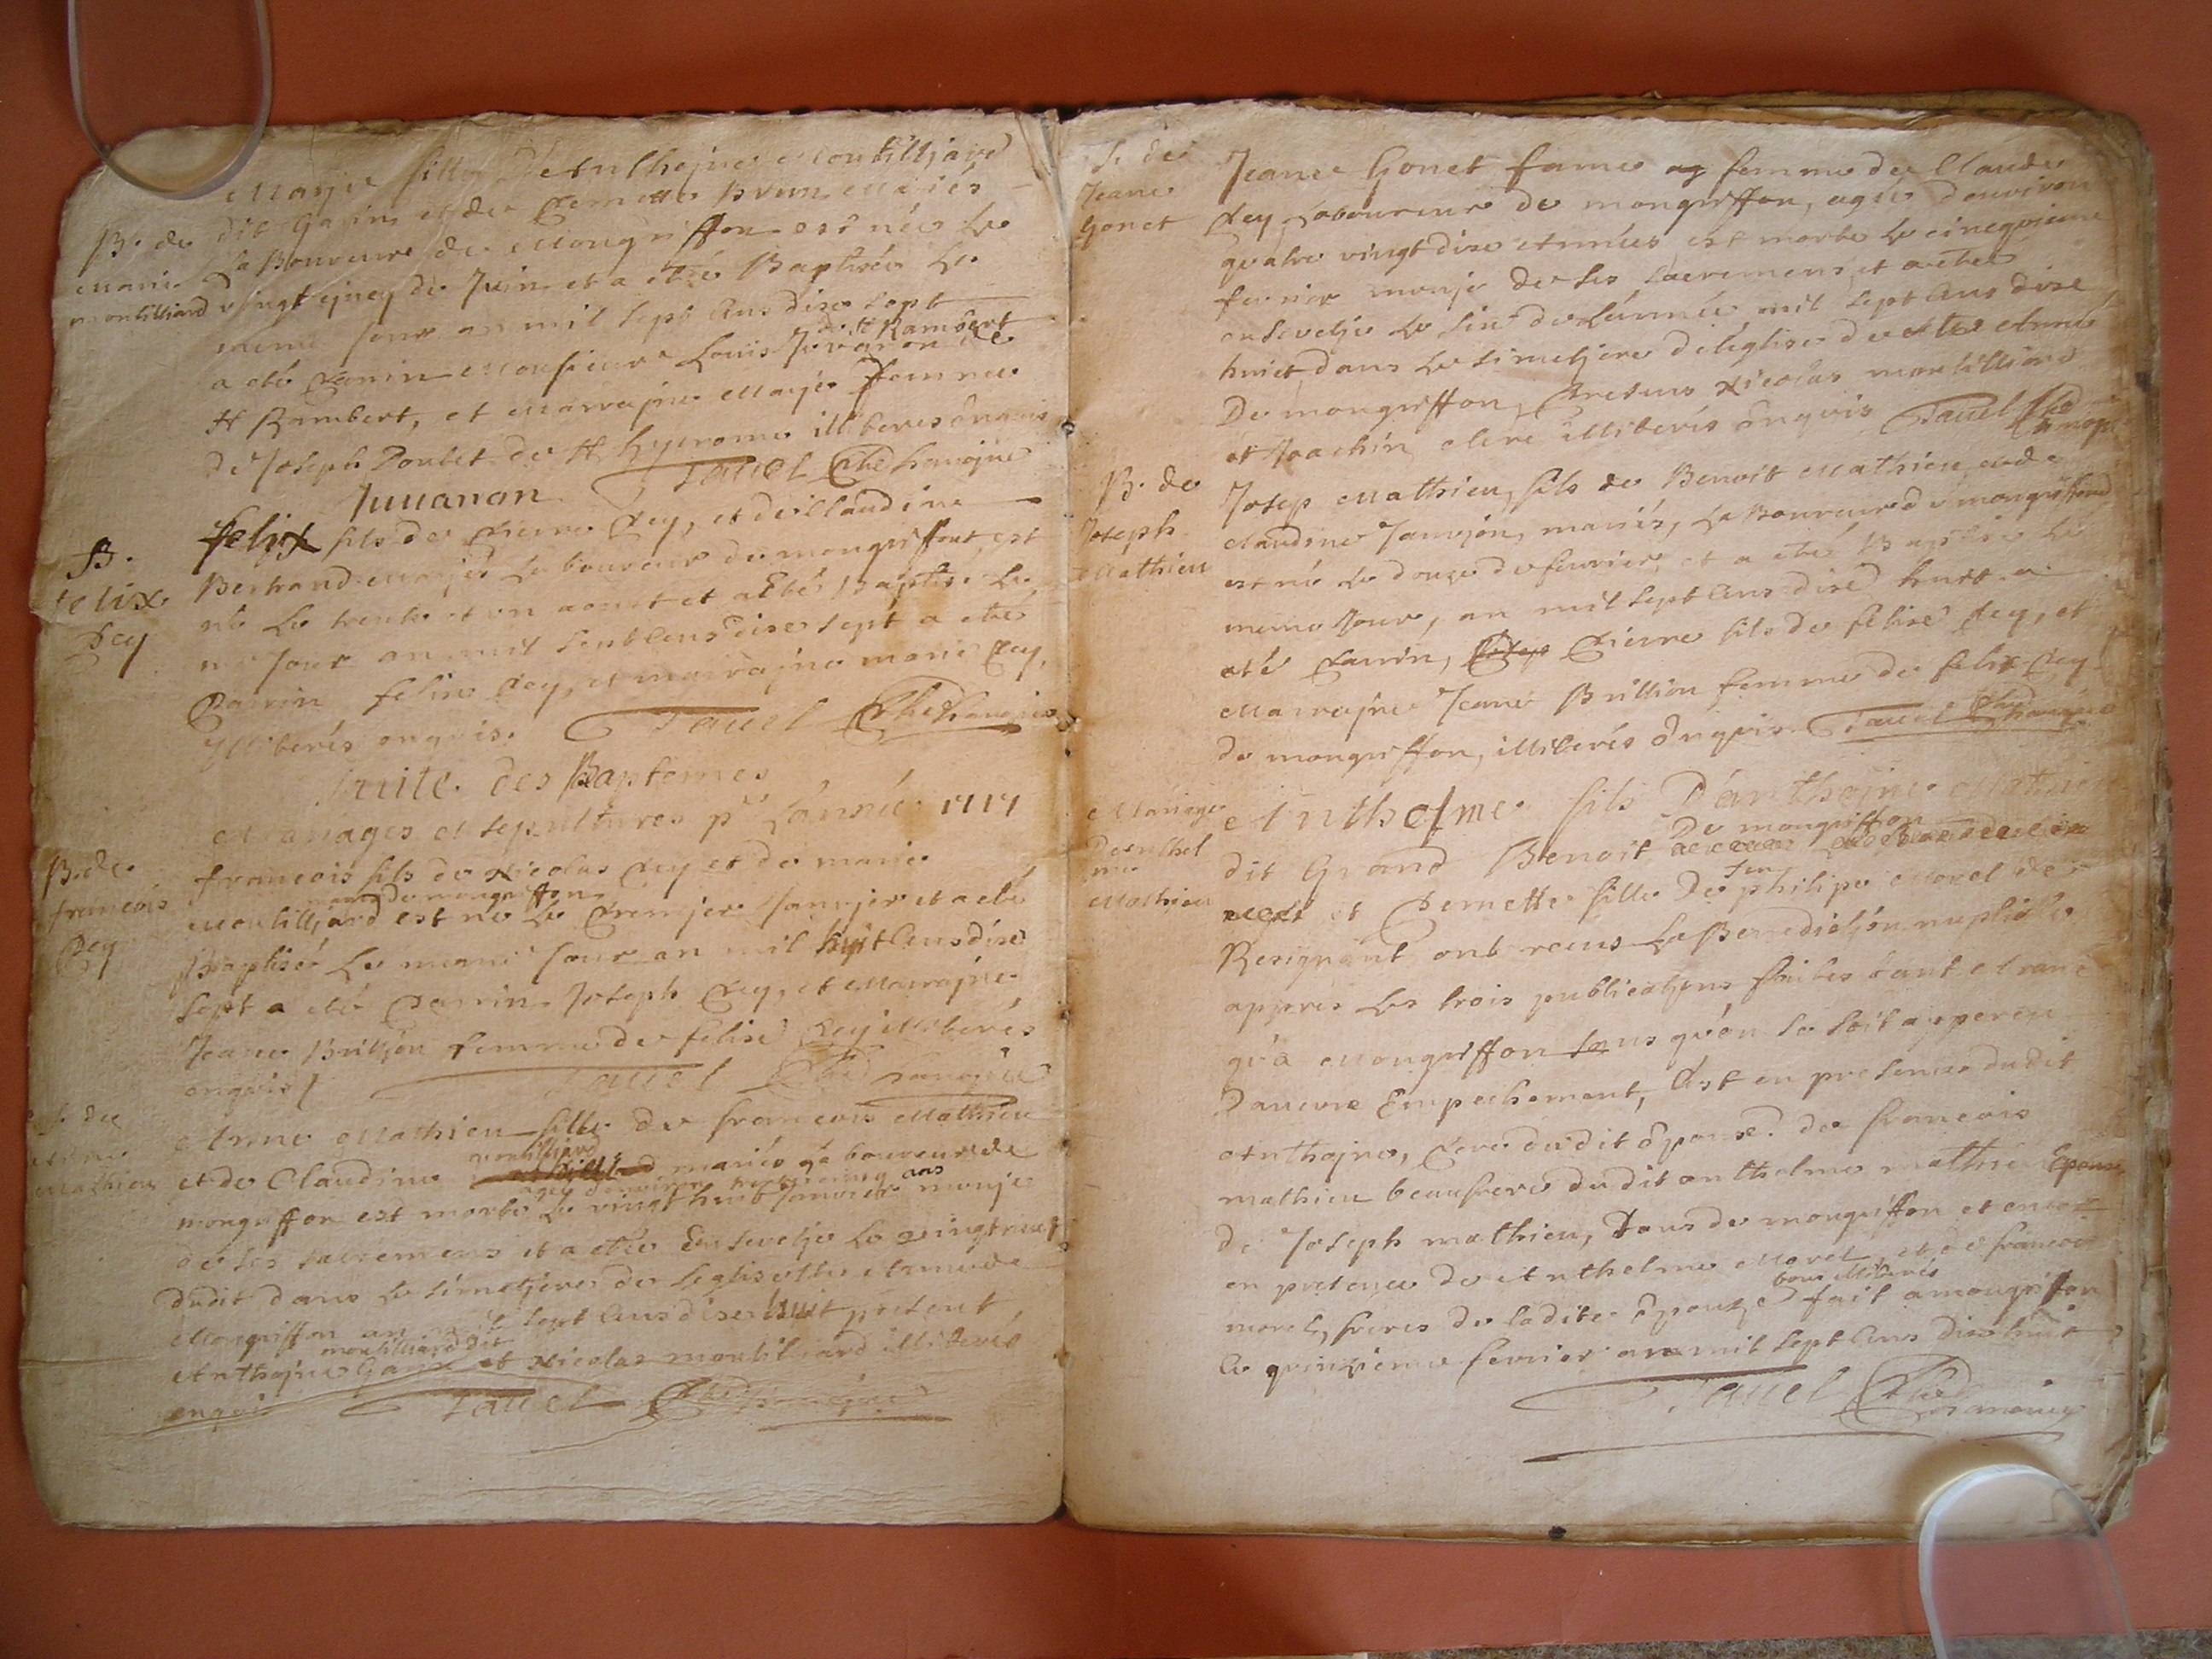 B. de
marie
montilliard
Marie fille D'Anthoine Montilliard
dit Gajin et de Pernette Brun Mariés
La Boureure de Mongriffon est née Le
vingt cinq de Juin et a eté Baptisée Le
meme Jour an mil sept Cens dise sept
a eté Parin Monsieur Louis Juvanon de
St Rambert, et Marrajne Marie femme
de Joseph Poubet de St hyerome illiterés enquis
Juuanon Tavel
B.
felix
Rey
felix fils de Pierre Rey, et de Claudine
Bertrand Mariés La boureur de mongriffont est
né Le trente et un aoust et a Eté Baptise Le
me Jour an mil sept Cens dise sept a eté
Parrin felix Rey, et marrajne marie Rey,
Illiterés enquis. Tavel
Suite des Baptemes
Mariages et sepultures pr L'année 1717
B. de
francois
Rey
francois fils de Nicolas Rey et de marie
mariés de mongriffon
Montilljard est né Le Premjer Janvjer et a eté
Baptisé Le meme Jour an mil huit Cens dise
sept a eté Parrin Joseph Rey, et Marrajne
Jeane Brilljon femme de felise Rey illiterés
enquis / Tavel
S. de
Anne
Mathieu
Anne Mathieu fille de francois Mathieu
montilliard
et de Claudine mariés La boureur de
agée d'environ trente cinq ans
mongriffon est morte Le vingt huit Janvier munje
de ses sacremens et a etée Ensevelje Le vingt neuf
dudit dans Le simetjere de Leglise Annéee de
Mongriffon an mil sept Cens dise huit present
montilliard dit
Anthojne Gajin et Nicolas montilliard illiterés
enquis Tavel
S. de
Jeane
Gonet
Jeane Gonet fame ag femme de Claude
Rey Laboureur de mongriffon, agée d'environ
quatre vingt dise Années est morte Le cinequieme
fevrier munje de ses sacremens et a etee
ensevelje Le sin de L'année mil sept Cens dise
huict dans Le simetjere de L'eglise de Anné
De mongriffon, Presens Nicolas montilliard
et Joachin clerc illiterés enquis Tavel
B. de
Joseph
Mathieu
Josep Mathieu, fils de Benoit Mathieu et de
claudine Janvjon, mariés, La Boureur de mongriffond
est né Le douze de fevrier, et a eté Baptisé Le
meme Jour, an mil sept Cens dise huit a
eté Parrin, Pierre fils de felise Rey, et
Marrajne Jeane Brillion femme de felix Rey
de mongriffon, illiterés enquis Tavel
Mariage
D'anthel
me
Mathieu
Anthelme fils D'anthojne Mathieu
De mongriffon
dit Grand Benoit
feu
et Pernette fille De philipe Morel de
Resignant ont receus La Benedictjon nuptialle
appres Les trois publicatjons faites tant a
qu'a Mongriffon sans qu'on se soit apperceu
D'aucune Empechement, C'est en presence dudit
Anthojne, Pere dudit epouse. de francois
mathieu beaufrere dudit anthelme mathieu Epouse,
De Joseph mathieu, Tous de mongriffon et encor
en presence de Anthelme Morel, et de francois
tous illiterés
morel, freres de ladite epouze fait a mongriffon
le quinzieme fevrier an mil sept Cens dise huit
Tavel